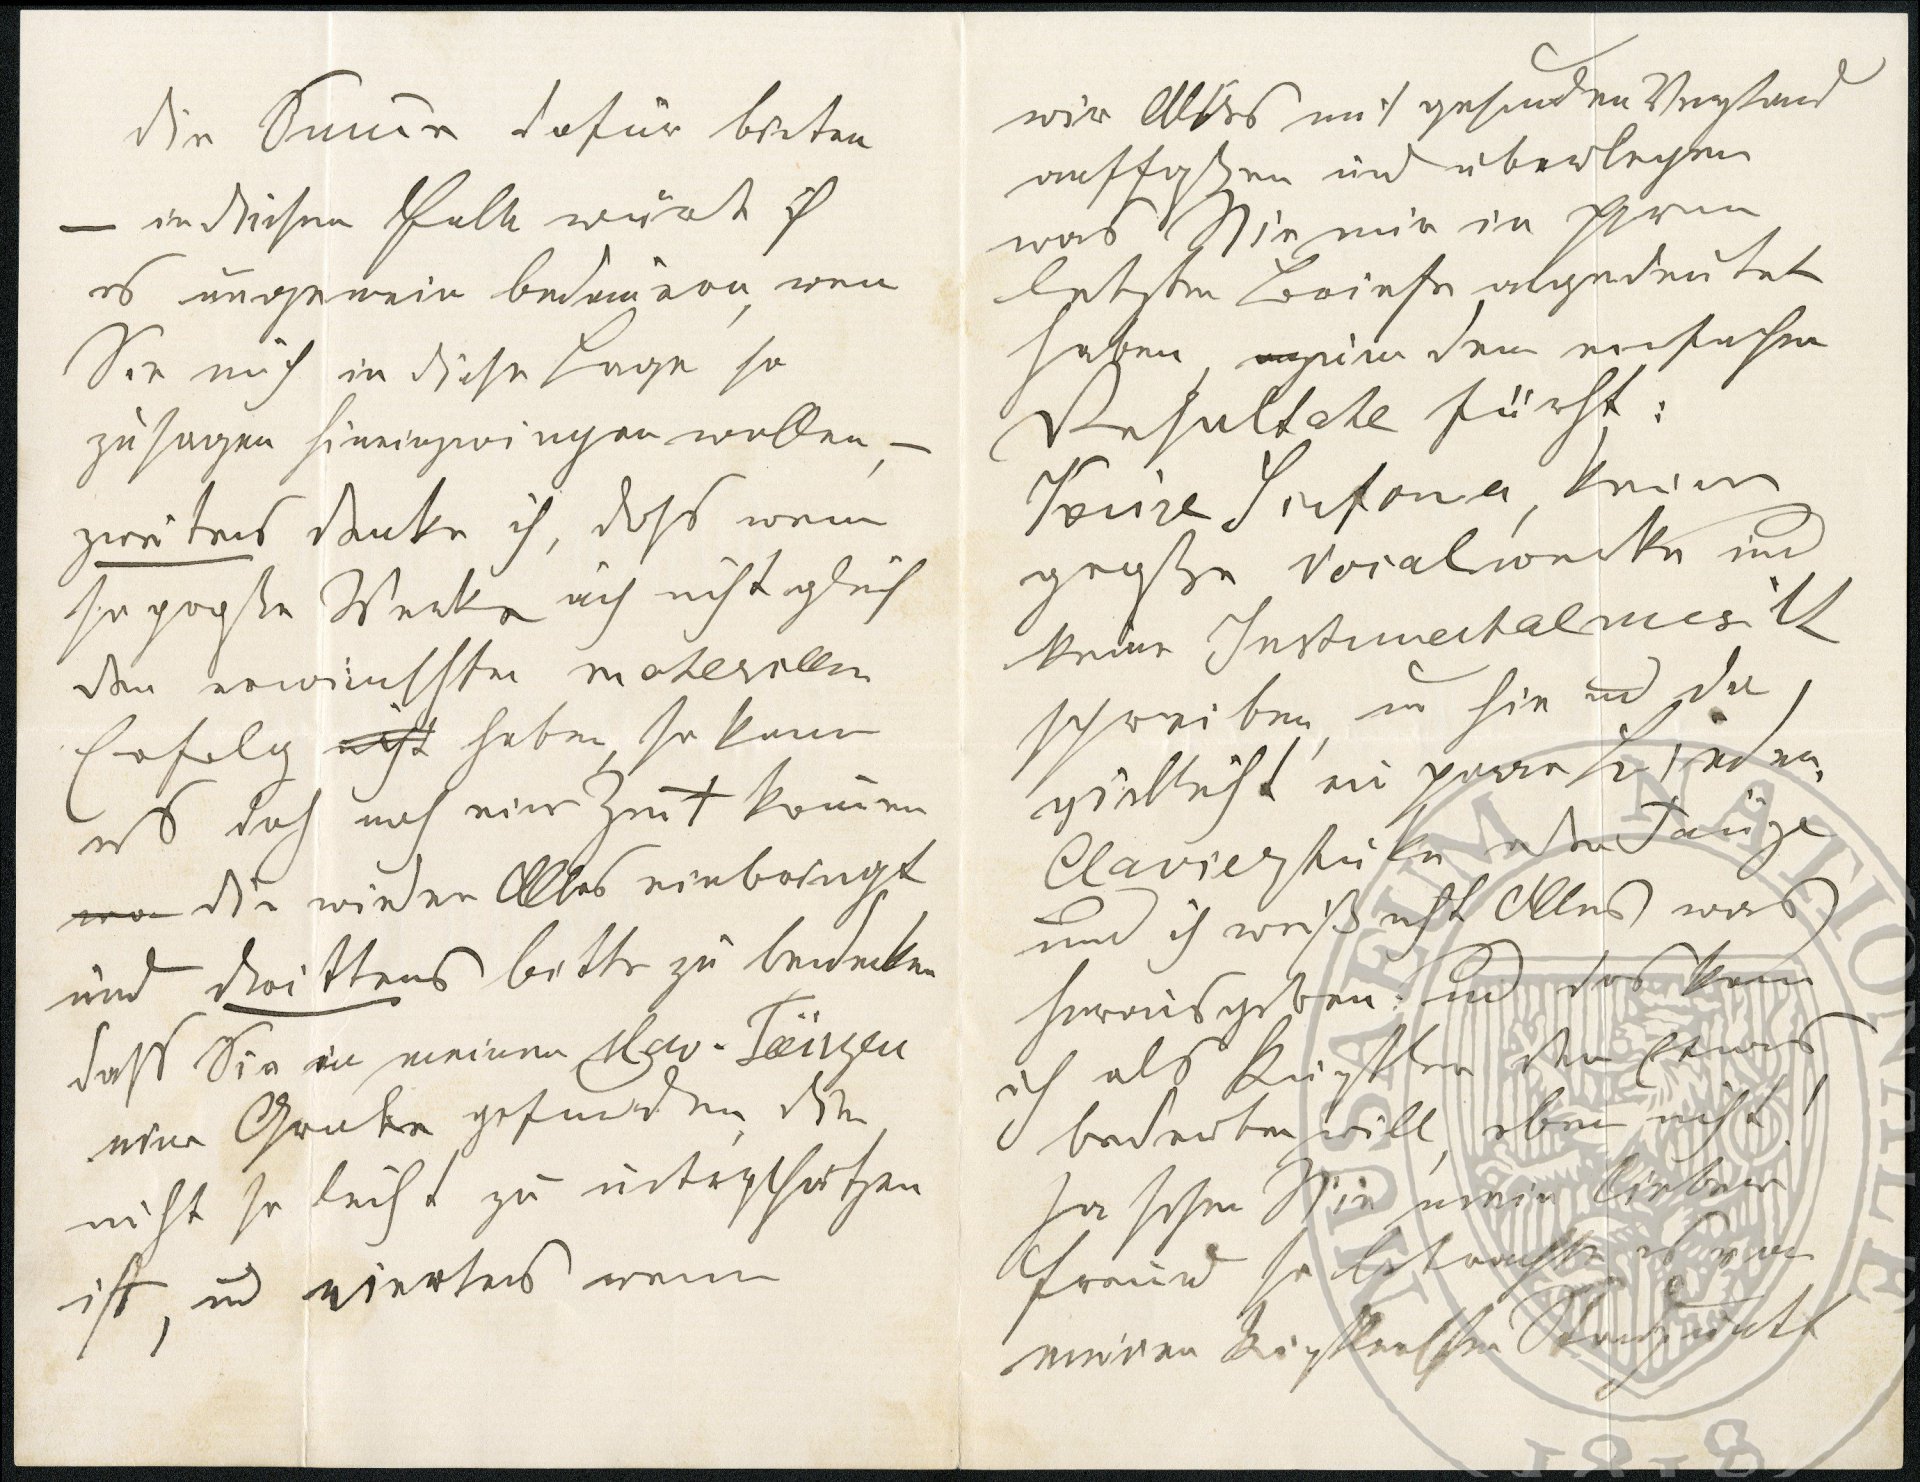 die Summe dafür bieten
— in diesem Falle würde ich
es ungemein bedauern, wen
Sie mich in diese Lage so
zusagen hineinzwingen wollen, —
zweitens denke ich, dass wenn
so große Werke auch nicht gleich
den erwünschten materiellen
Erfolg nicht haben, so kann
es doch noch eine Zeit kommen
die wieder Alles einbringt
und drittens bitte zu bedenken
dass Sie in meinen slav. Tänzen
eine Grube gefunden, die
nicht so leicht zu unterschätzen
ist, und viertens wenn
wir Alles mit gesunden Verstand
auffassen und überlegen
was Sie mir in Ihren
letzten Briefe angedeutet
haben, zum dem einfachen
Resultate führt:
Keine Sinfonie, keine
große Vocalwerke und
keine Instrumentalmusik
schreiben, nur hie und da
vielleicht ein paar Lieder,
Clavierstücke oder Tänze
und ich weiß nicht Alles was
herausgeben: und das kann
ich als Künstler der Etwas
bedeuten will, eben nicht!
Ja sehen Sie mein lieber
Freund so betrachte es von
meinen künstlerischen Standpunkt
MUSAEUM NATIONALE
1818